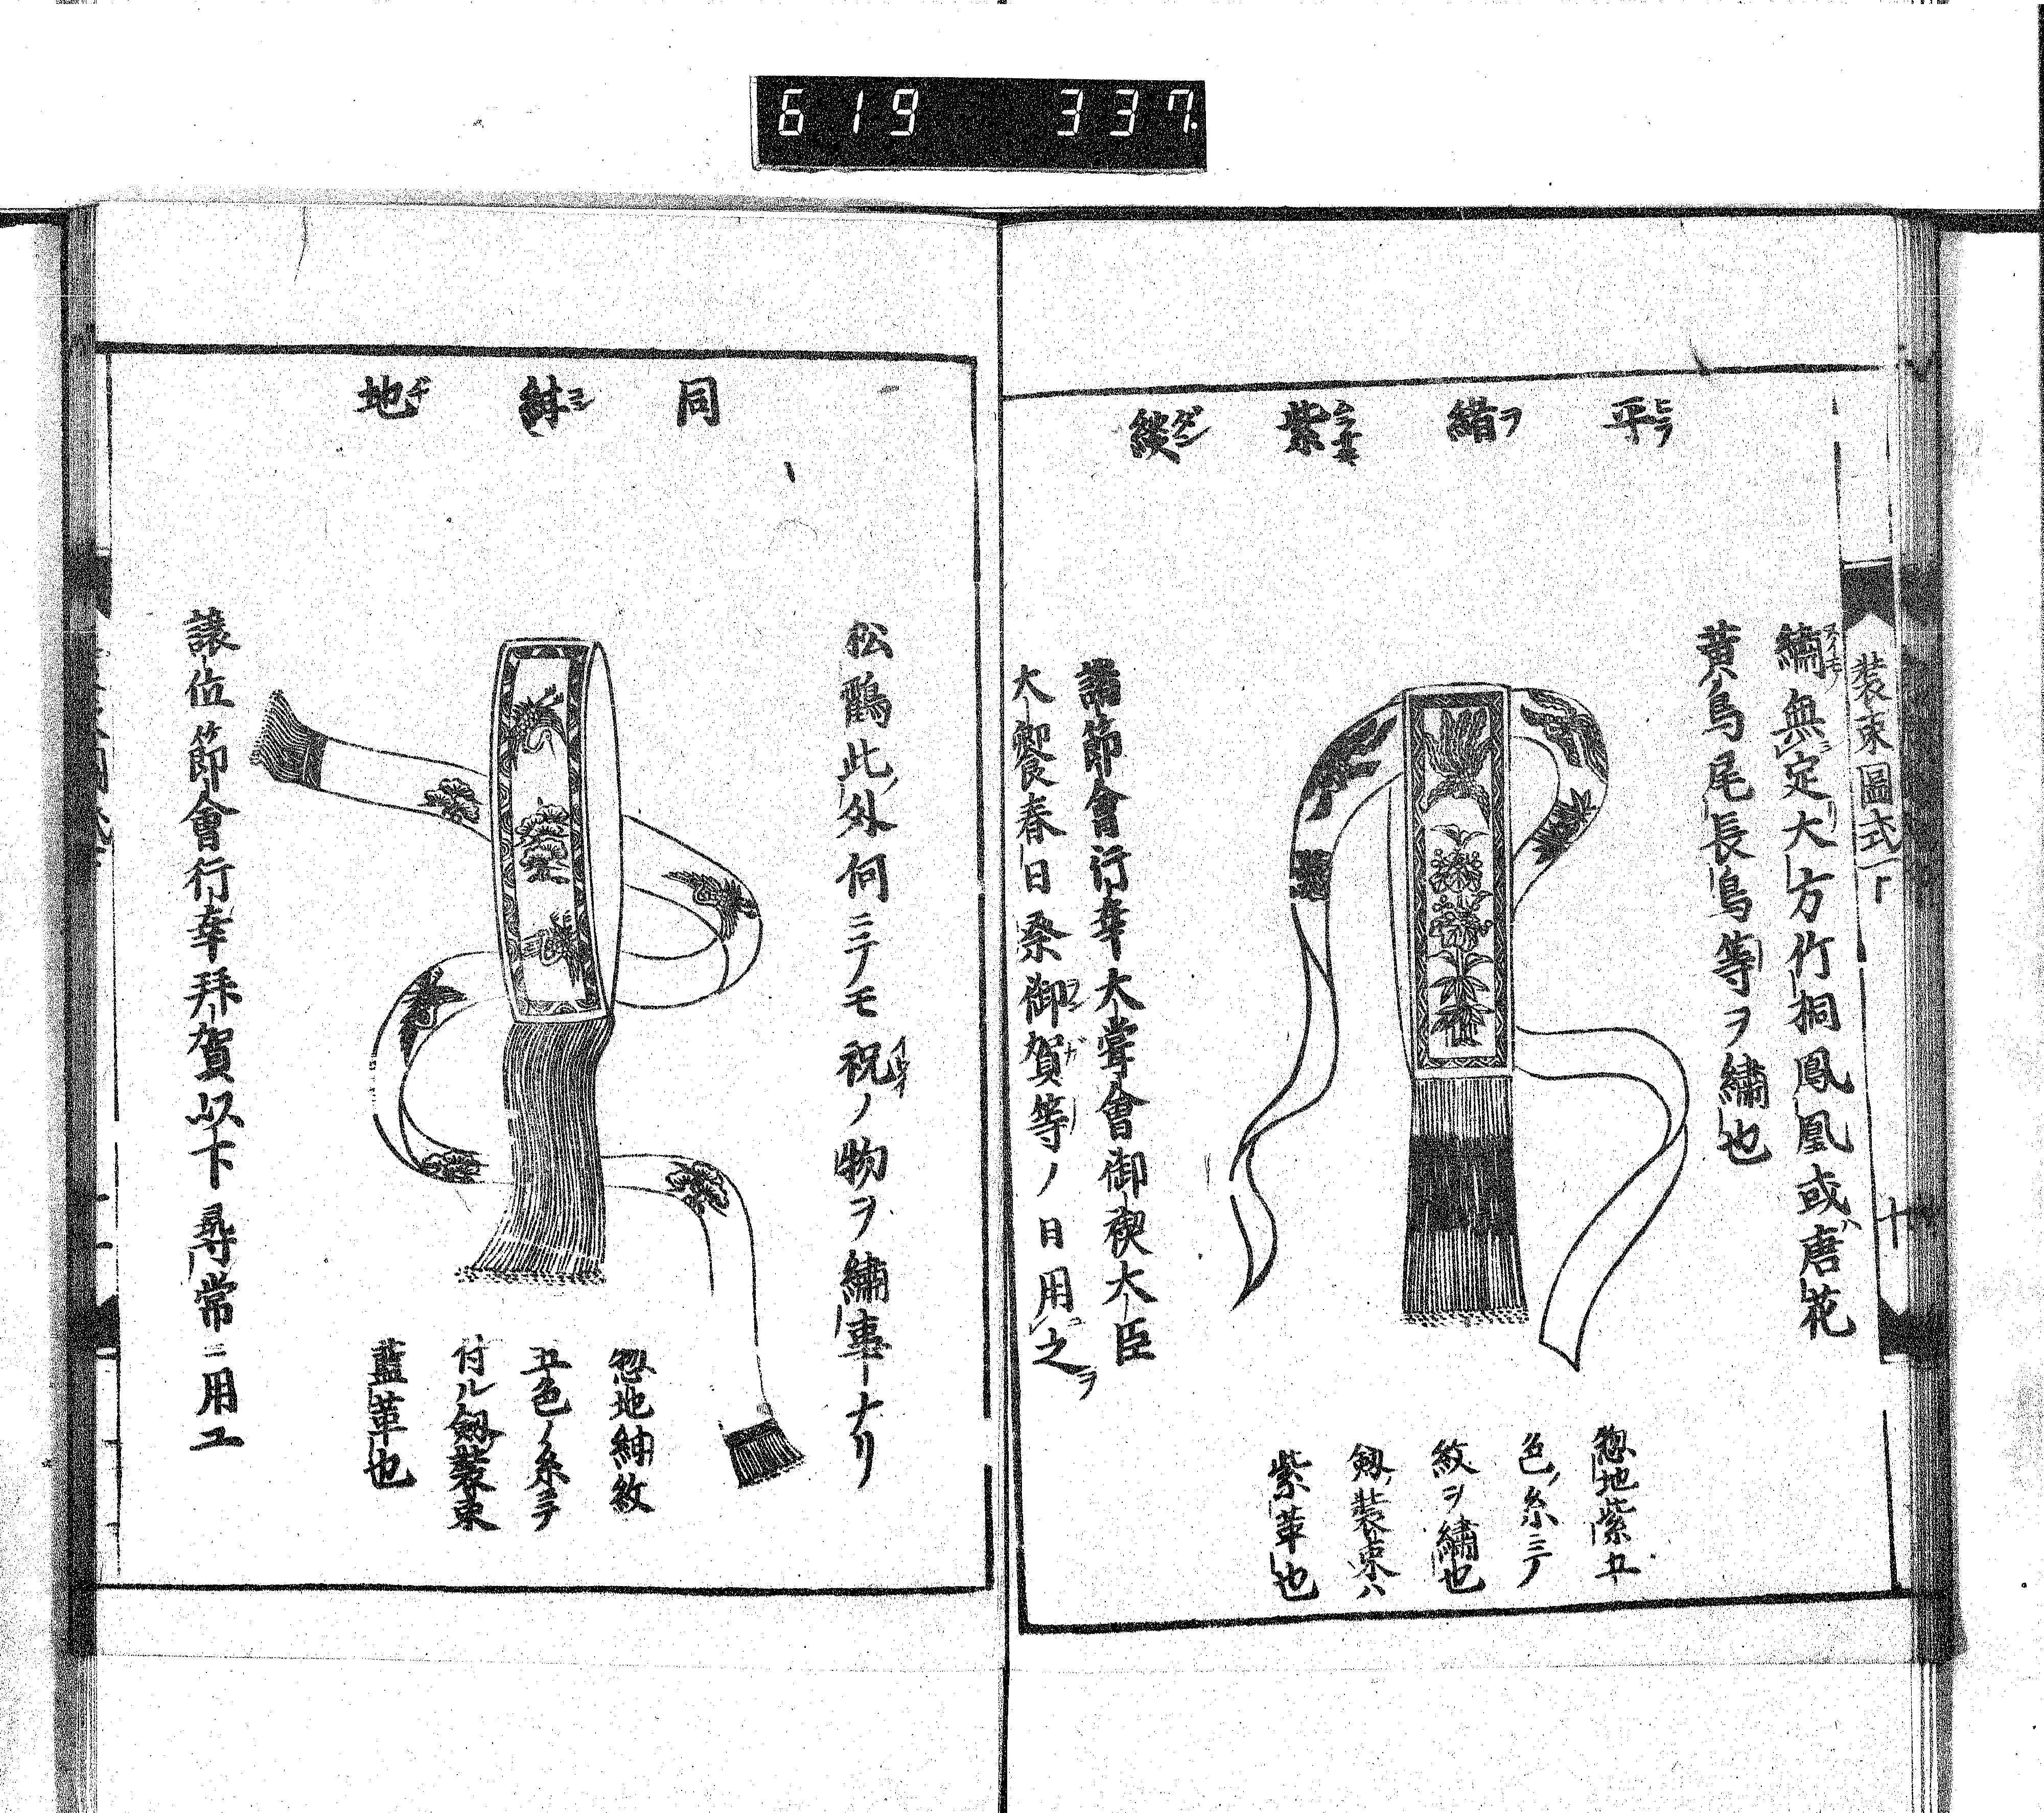 619 337
裝束圖式 下
十
平緒紫緂
ヒラヲムラサキダン
繡無定大方竹桐鳳凰或唐花
黄鳥尾長鳥等ヲ繡也
惣地紫五
色ノ糸ニテ
紋ヲ繡也
劔ノ裝束ハ
紫革也
諸節會行幸大嘗會御禊大臣
大饗春日祭御賀等ノ日用之
同紺地
松鶴此外何ニテモ祝ノ物ヲ繡事ナリ
惣地紺紋
五色ノ糸ニテ
付ル劔裝束
藍革也
譲位節會行幸拜賀以下尋常ニ用ユ